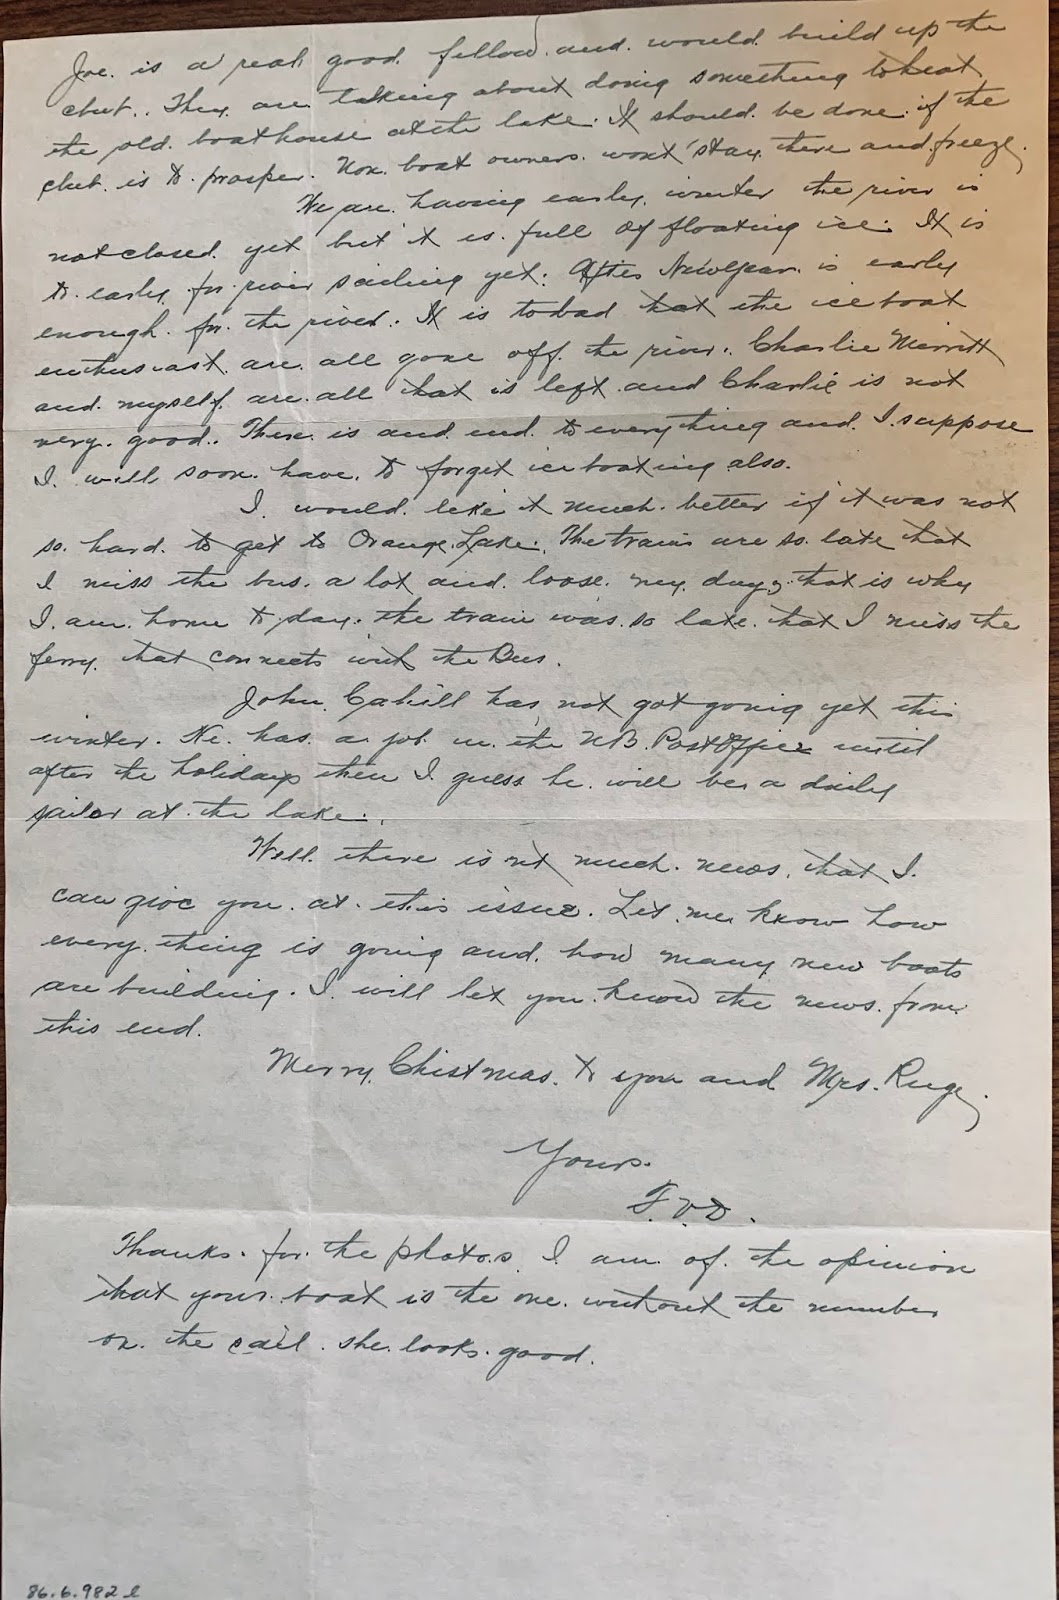 Joe. is a real good fellow. and. would. build up the
club.. They are talking about doing something to heat
the old. boathouse at the lake. It should be done. if the
club. is to. prosper. Non. boat owners. wont stay there and freeze.
We are. having early. winter the river is
not closed. yet but it is. full of floating ice. It is
to. early. for. river sailing yet. After NewYear. is early
enough. for. the river. It is to bad that the iceboat
enthusiast. are. all gone off. the river. Charlie Merritt
and. myself. are. all that is left. and Charlie is not
very. good.. There. is and. end. to everything and. I. suppose
I. will soon. have. to forget iceboating also.
I. would. like it much. better if it was not
so. hard. to get to Orange. Lake. The trains are so. late that
I miss the bus. a lot and. loose. my. day, that is why
I. am. home to day. the train was. so late. that I miss the
ferry. that connects with the Bus.
John. Cahill has, not got going yet this
winter. He. has. a job. in. the N.B. PostOffice until
after the holidays then I. guess he. will be. a daily
sailor at the lake.
Well. there is not much. news. that I.
can give you. at. this issue. Let. me. know how
every. thing is going and. how many new boats
are building. I. will let you. know the news. from.
this end.
Merry. Chistmas. to you and Mrs. Ruge.
Yours.
F.V.D.
Thanks. for. the photos. I am. of. the opinion
that your. boat is the one. without the number
on. the sail. she. looks. good.
86.6.982 l